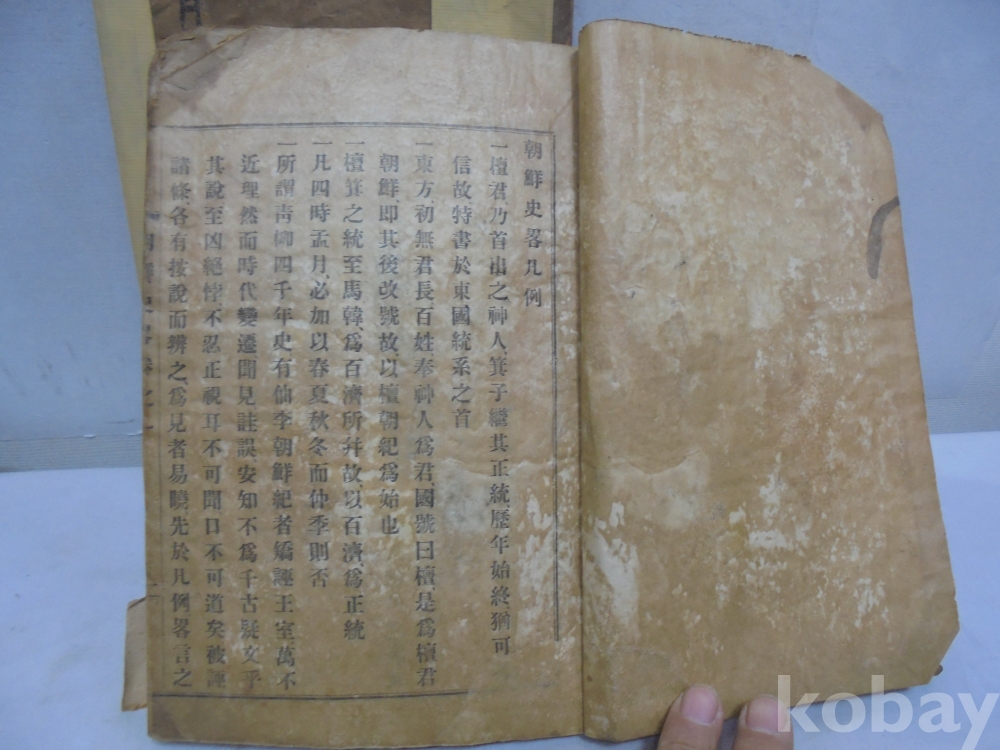 朝鮮史畧凡例
一檀君、乃首出之神人、箕子繼其正統、歷年始終、猶可
信故特書於東國統系之首
一東方、初無君長百姓、奉神人爲君、國號曰檀、是爲檀君
朝鮮、即其後改號故、以檀朝紀爲始也
一檀箕之統至馬韓、爲百濟所幷故、以百濟、爲正統
一凡四時孟月、必加以春夏秋冬而仲季則否
一所謂靑鄕四千年史、有仙李朝鮮紀者矯誣王室、萬不
近理然而時代變遷聞見註誤、安知不爲千古疑文乎
其說至凶絕悖、不忍正視耳不可聞口不可道矣被誣
諸條、各有按說而辨之、爲見者易曉先於凡例畧言之
kobay